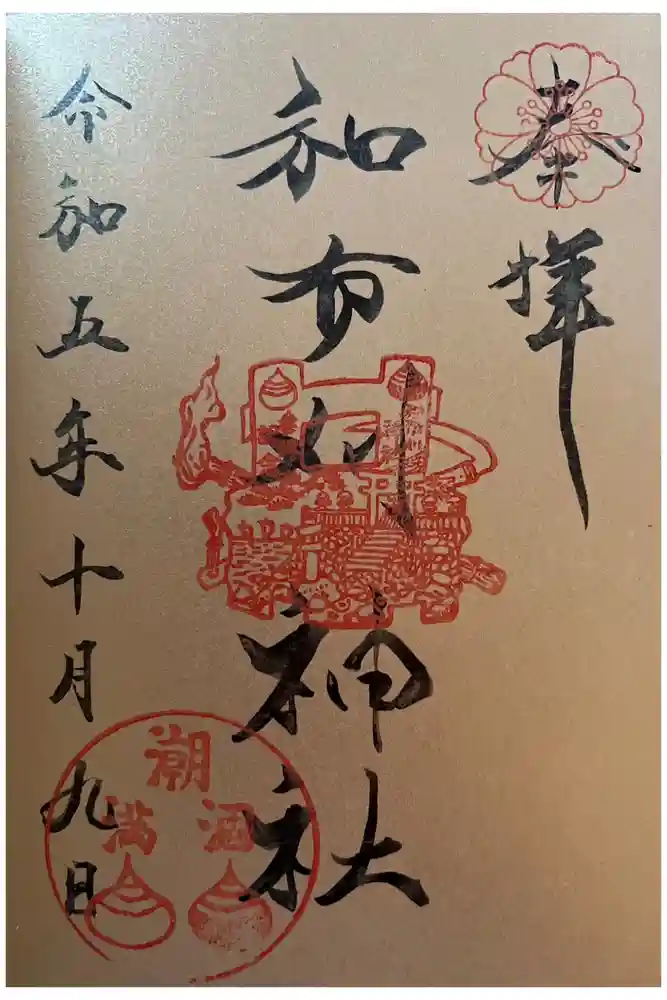 奉拝
加布刈神社
令和五年十月九日
潮
満 涸